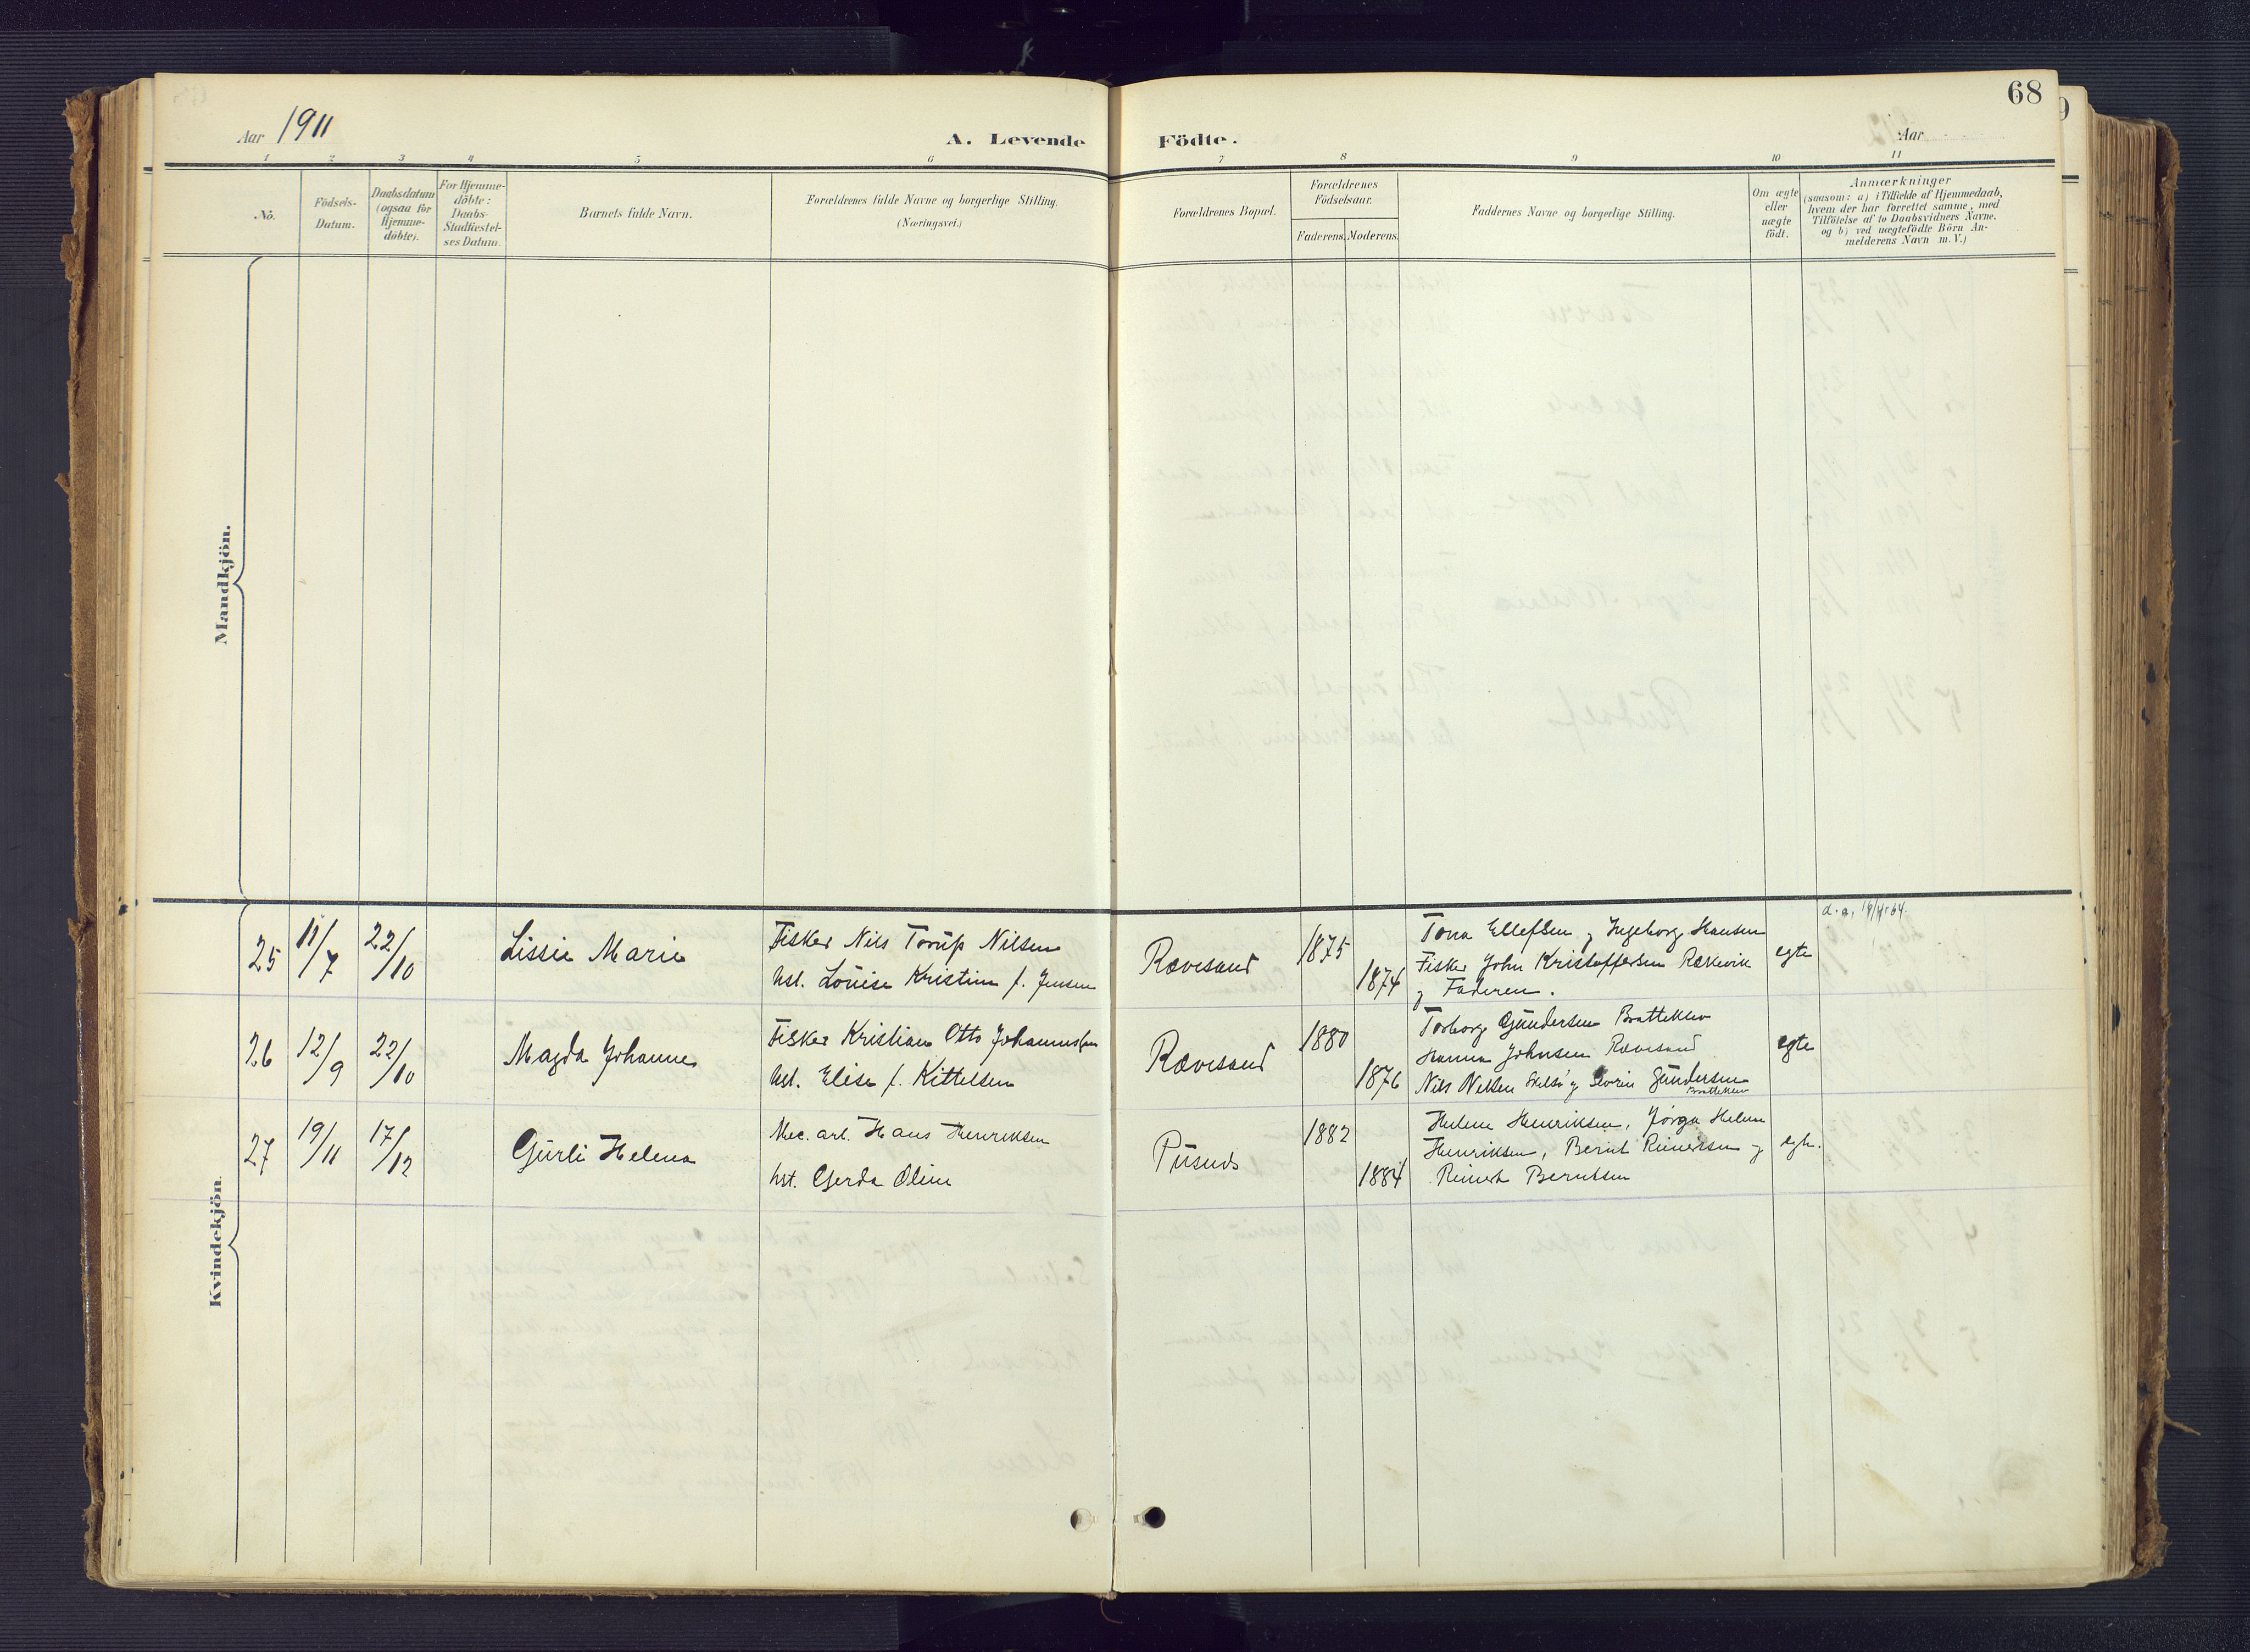 68
Aar 1911
A. Levende Födte.
Aar
1 2 3 4 5 6 7 8 9 10 11
No.
Födsels-
Datum.
Daabsdatum
(ogsaa for
Hjemme-
döbte).
For Hjemme-
döbte:
Daabs-
Stadfæstel-
ses Datum.
Barnets fulde Navn.
Forældrenes fulde Navne og borgerlige Stilling.
(Næringsvei.)
Forældrenes Bopæl.
Forældrenes
Födselsaar.
Faderens.
Moderens.
Faddernes Navne og borgerlige Stilling.
Om ægte
eller
uægte
födt.
Anmærkninger
(saasom: a) i Tilfælde af Hjemmedaab,
hvem der har forrettet samme, med
Tilföielse af to Daabsvidners Navne.
og b) ved uægtefödte Börn An-
melderens Navn m. V.)
Mandkjön.
Kvindekjön.
25
11/7
22/10
Lissie Marie
Fisker Nils Torup Nilsen
hst. Louise Kristine f. Jensen
Rævesand
1875
1874
Tona Ellefsen, Ingeborg Hansen
Fisker John Kristoffersen Rækevik
og Faderen.
egte
26
12/9
22/10
Magda Johanne
Fisker Kristian Otto Johannesen
hst. Elise f. Kittelsen
Rævesand
1880
1876
Torborg Gundersen Bratteklev
Hanna Johnsen Rævesand
Nils Nilsen og Severin Gundersen
Bratteklev
egte
27
19/11
17/12
Gurli Helena
Mec. arb. Hans Henriksen
hst. Gerda Oline
Pusnes
1882
1884
Helene Henriksen, Jørga Helene
Henriksen, Bernt Reinertsen og
Reinert Berntsen
egte.